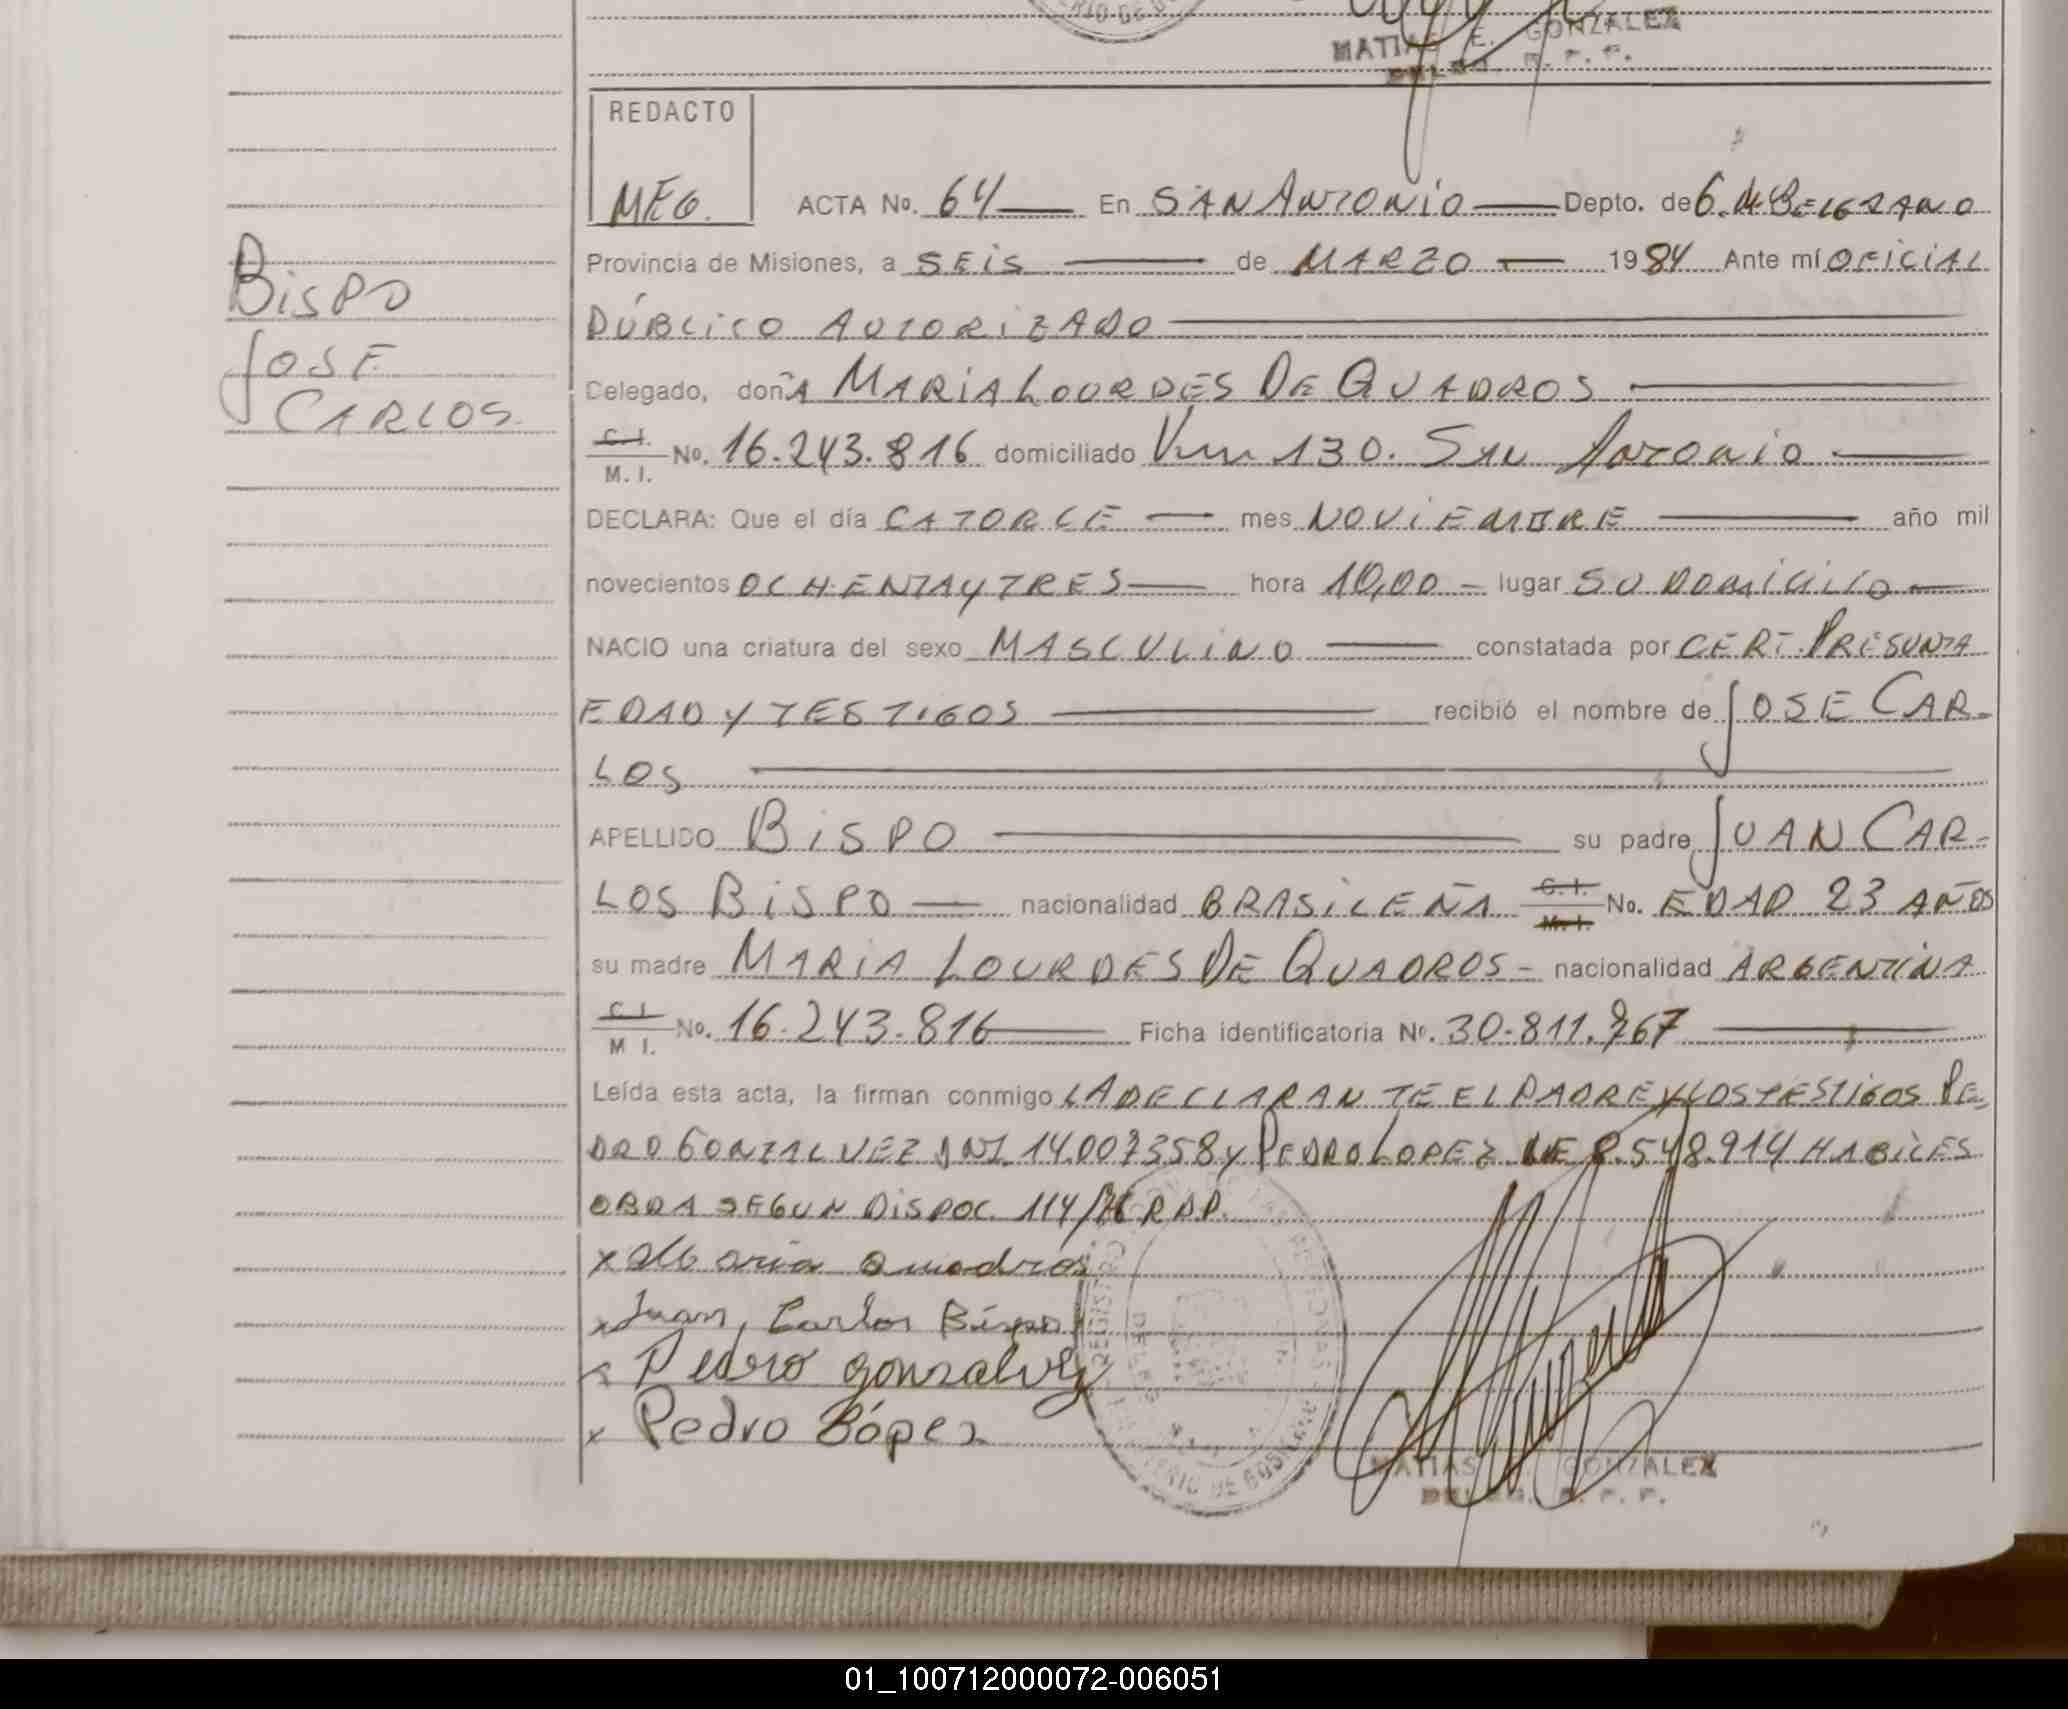 MATIAS E. GONZALEZ
DELEG. R. P. P.
REDACTO
MEG.
ACTA No. 64 En SAN ANTONIO Depto. de G. M. BELGRANO
Provincia de Misiones, a SEIS de MARZO 1984 Ante mí OFICIAL
PÚBLICO AUTORIZADO
Delegado, doñA MARIA LOURDES DE QUADROS
C.I.
M. I. No. 16.243.816 domiciliado Km 130. San Antonio
DECLARA: Que el día CATORCE mes NOVIEMBRE año mil
novecientos OCHENTA Y TRES hora 10,00 lugar SU DOMICILIO
NACIO una criatura del sexo MASCULINO constatada por CERT. PRESUNTA
EDAD Y TESTIGOS recibió el nombre de JOSE CAR-
LOS
APELLIDO BISPO su padre JUAN CAR-
LOS BISPO nacionalidad BRASILEÑA C.I. M.I. No. EDAD 23 AÑOS
su madre MARIA LOURDES DE QUADROS nacionalidad ARGENTINA
C.I.
M I. No. 16.243.816 Ficha identificatoria No. 30.811.767
Leída esta acta, la firman conmigo LA DECLARANTE EL PADRE Y LOS TESTIGOS PE-
DRO GONZALVEZ DNI. 14.007.358 y PEDRO LOPEZ LE 8.548.914 HABILES
OBRA SEGUN DISPOC. 114/76 RPP.
x Maria Quadros
x Juan, Carlos Bispo
x Pedro gonzalvez
x Pedro López
MATIAS GONZALEZ
DELEG. R. P. P.
BISPO
JOSE
CARLOS.
01_100712000072-006051